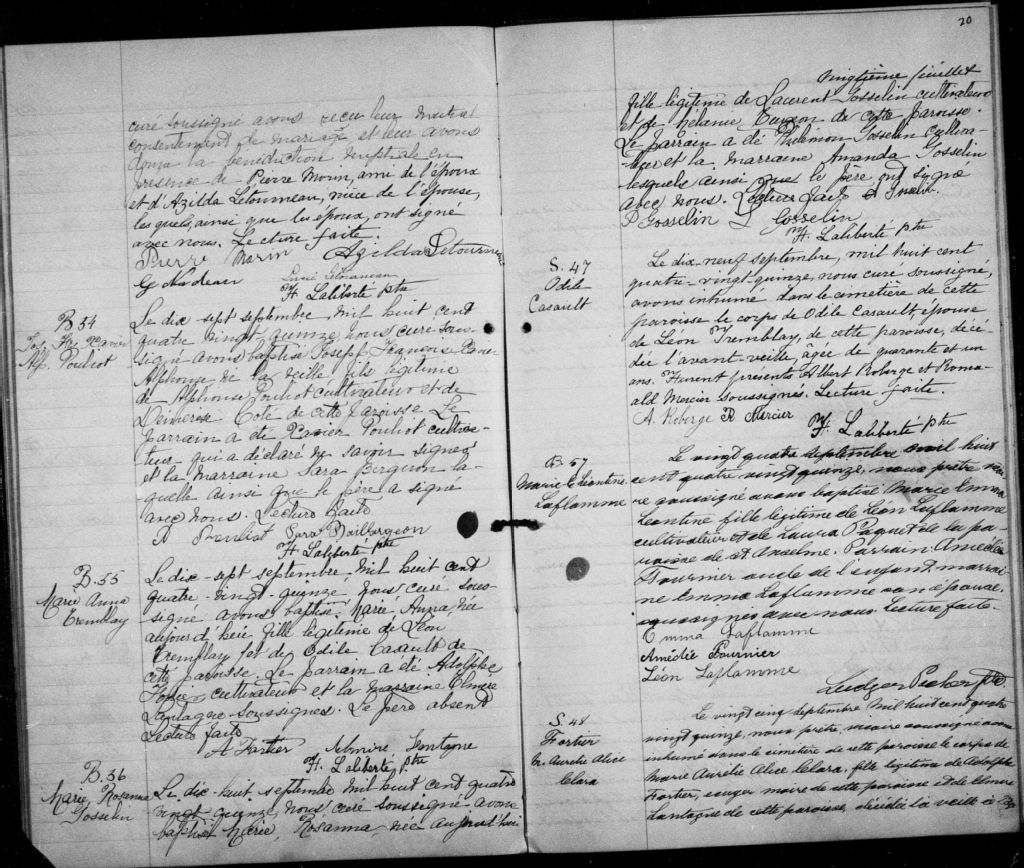 curé soussigné avons recu leur mutuel
consentement de mariage et leur avons
donné la bénédiction nuptiale en
présence de Pierre Morin, ami de l'époux
et d'Azilda Letourneau, nièce de l'épouse,
lesquels, ainsi que les époux, ont signé
avec nous. Lecture faite.
Pierre Morin Azilda Letourneau
G Nadeau Letourneau
H. Laliberté ptre
B 54
Jos. Frs Xavier
Alp. Pouliot
Le dix-sept septembre, mil huit cent
quatre vingt quinze, nous curé sous-
signé avons baptisé Joseph François Xavier
Alphonse né la veille fils légitime
de Alphonse Pouliot cultivateur et de
Démérise Coté de cette paroisse. Le
parrain a été Xavier Pouliot cultiva-
teur qui a déclaré ne savoir signer
et la marraine Sara la-
quelle ainsi que le père a signé
avec nous. Lecture faite
A Pouliot Sara Baillargeon
H. Laliberté ptre
B. 55
Marie Anna
Tremblay
Le dix-sept septembre, mil huit cent
quatre-vingt-quinze, nous curé sous-
signé avons baptisé Marie Anna née
aujourd'hui fille légitime de Léon
Tremblay et de Odile Casault de
cette paroisse. Le parrain a été Adolphe
cultivateur et la marraine Elmire
Lantagne soussignés. Le père absent
Lecture faite
A Fortier Elmire Lantagne
H. Laliberté, ptre
B. 56
Marie Rosanna
Gosselin
Le dix-huit septembre mil huit cent quatre
vingt quinze, nous curé soussigné avons
baptisé Marie, Rosanna, née aujourd'hui
20
Vingtième feuillet
fille légitime de Laurent Gosselin cultivateur
et de Mélanie de cette paroisse.
Le parrain a été Philémon Gosselin cultiva-
teur et la marraine Amanda Gosselin
lesquels ainsi que le père ont signé
avec nous. Lecture faite A Gosselin
P Gosselin L Gosselin
H. Laliberté ptre
S. 47
Odile
Casault
Le dix-neuf septembre, mil huit cent
quatre-vingt-quinze, nous curé soussigné,
avons inhumé dans le cimetière de cette
paroisse le corps de Odile Casault épouse
de Léon Tremblay, de cette paroisse, décé-
dée l'avant-veille, âgée de quarante et un
ans. Furent présents Albert Roberge et Romu-
ald Mercier soussignés. Lecture faite.
A. Roberge R Mercier
H. Laliberté ptre
B. 57
Marie E. Leontine
Laflamme
Le vingt quatre septembre mil huit
cent quatre vingt quinze, nous prêtre vicai-
re soussigné avons baptisé Marie Emma
Leontine fille légitime de Léon Laflamme
cultivateur et de Laura Paquet de la pa-
roisse de St Anselme. Parrain Amédée
Fournier oncle de l'enfant marrai
ne Emma Laflamme son épouse.
soussignés avec nous Lecture faite.
Emma Laflamme
Amédée Fournier
Léon Laflamme
Ludger Ptre
S. 48
Fortier
M. Aurélie Alice
Clara
Le vingt cinq septembre mil huit cent quatre
vingt quinze, nous prêtre, vicaire soussigné avons
inhumé dans le cimetière de cette paroisse le corps de
Marie Aurélie Alice Clara, fille légitime de Adolphe
Fortier, écuyer maire de cette paroisse et de Elmire
Lantagne de cette paroisse, décédée la veille à